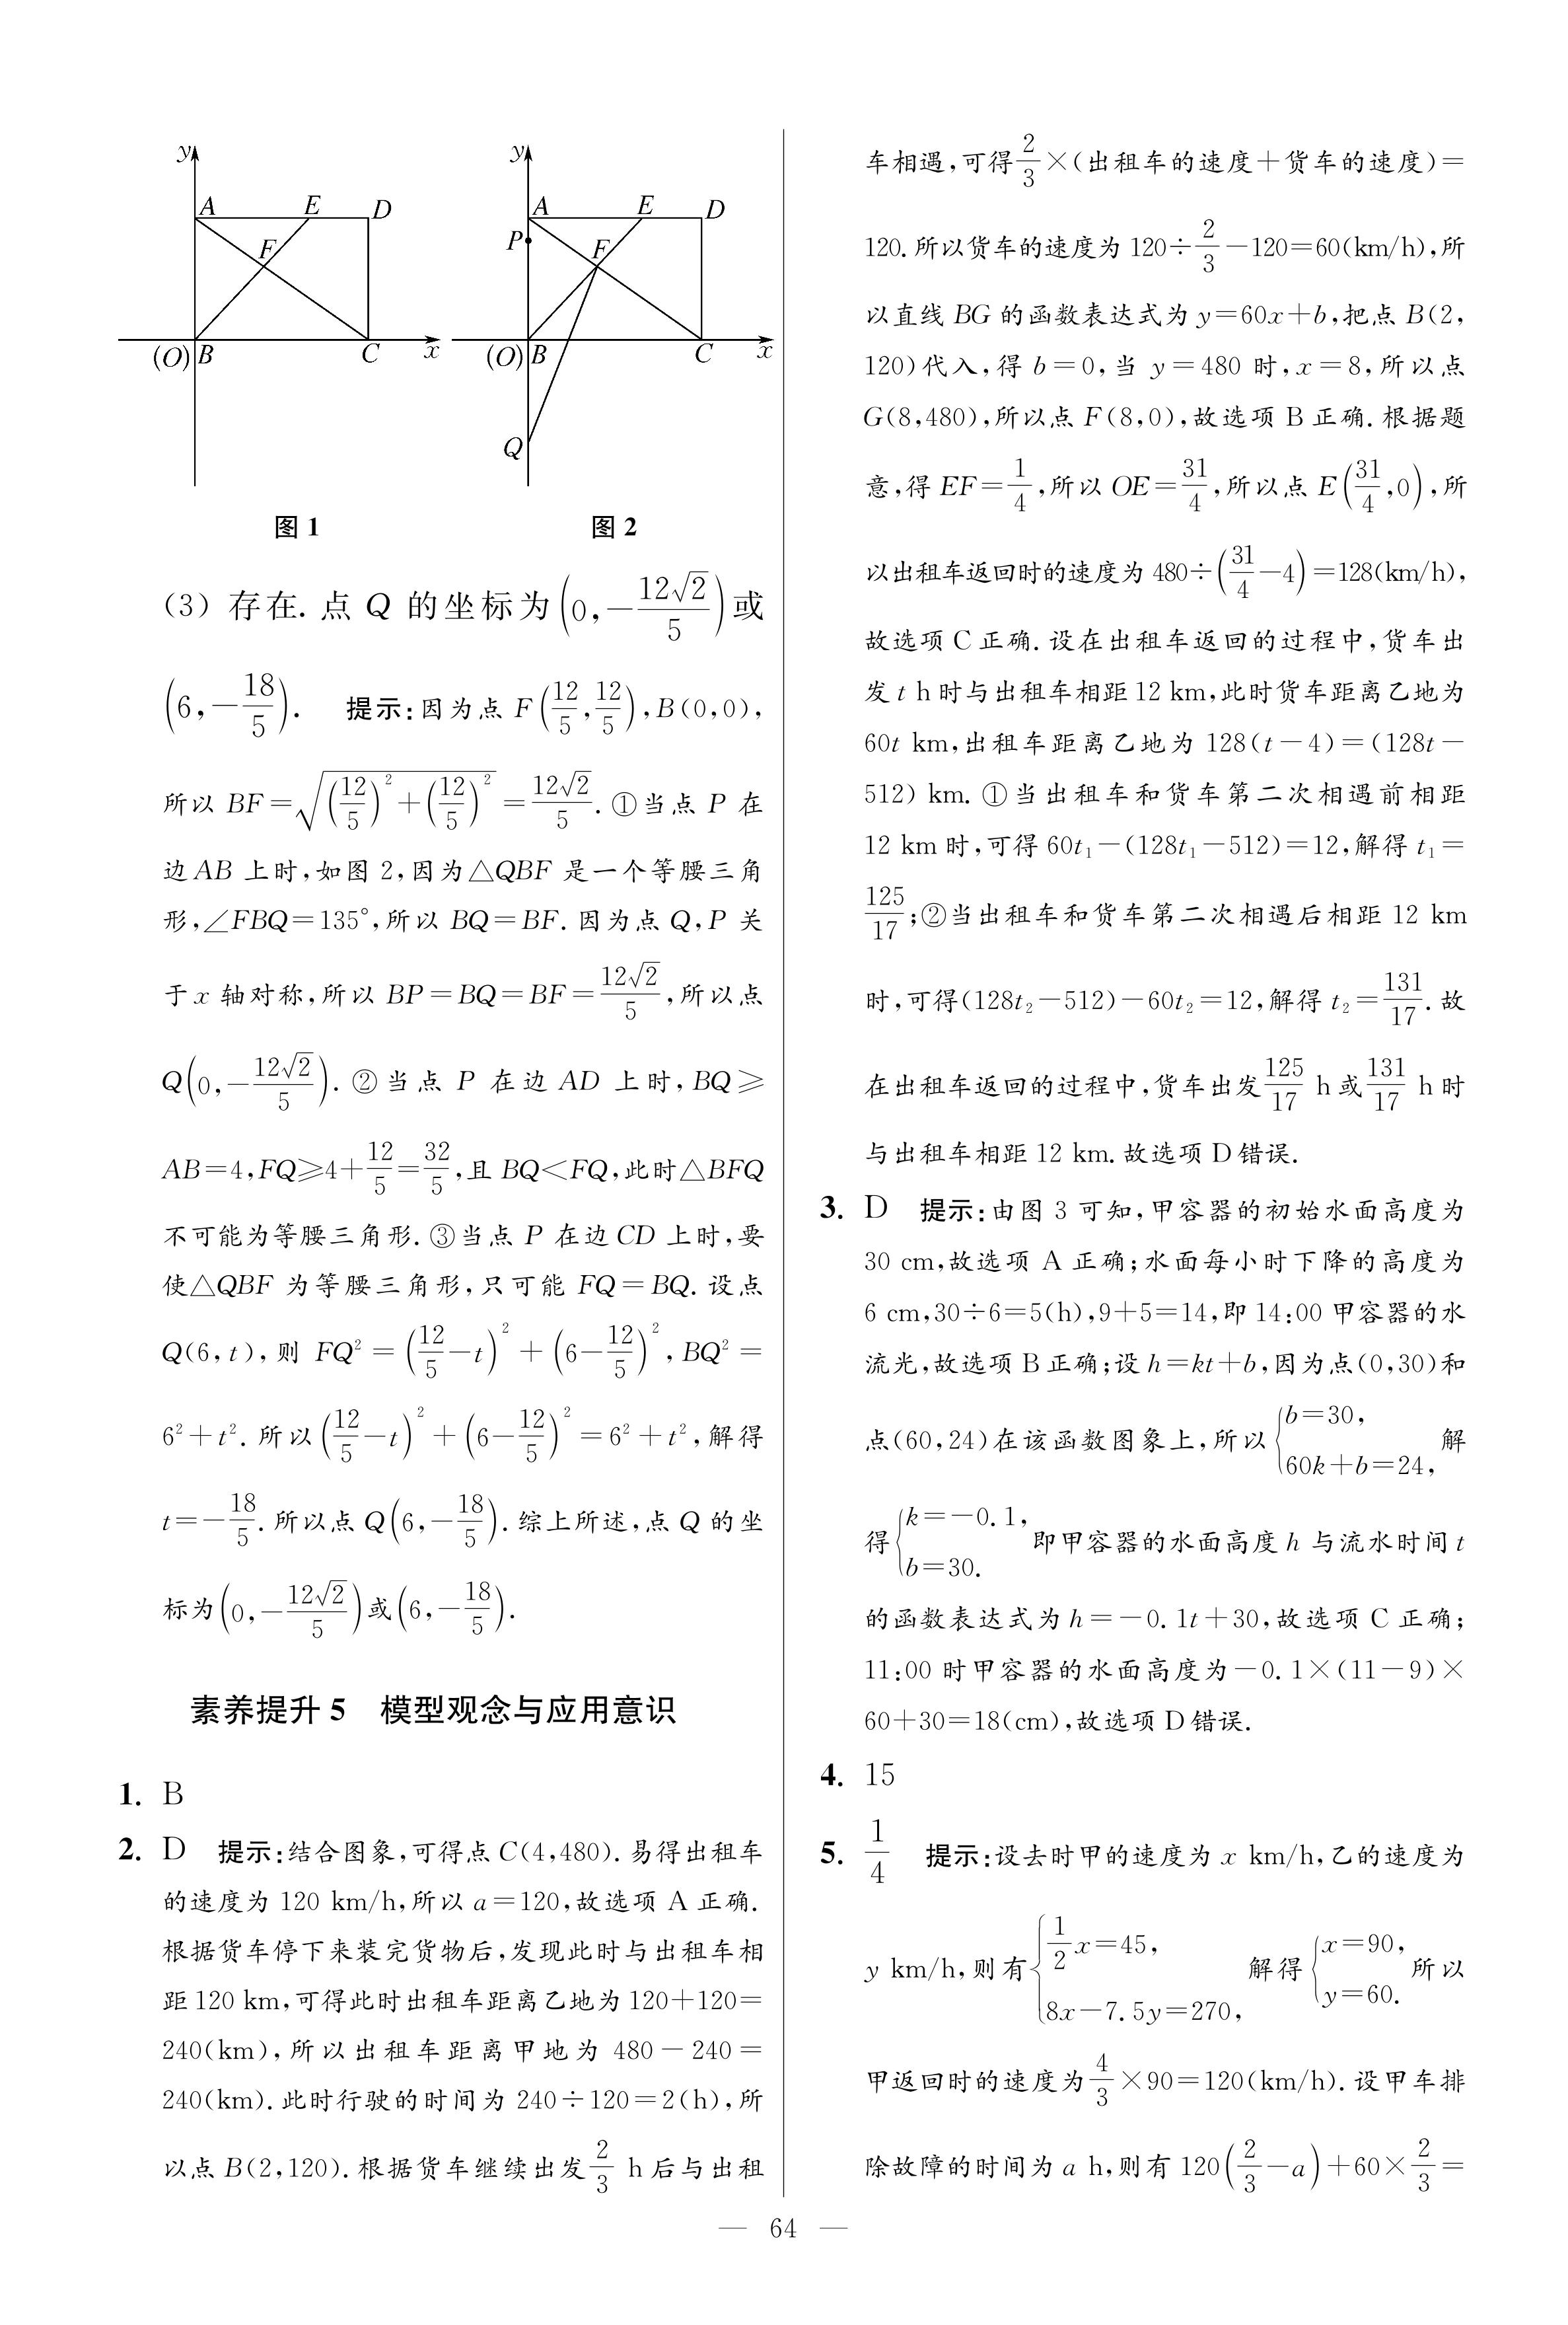 y
A
E
D
F
(O)
B
C
x
图 1
y
A
E
D
P
F
(O)
B
C
x
Q
图 2
(3) 存在. 点 Q 的坐标为(0,−12√2/5)或
(6,−18/5). 提示:因为点 F(12/5,12/5),B(0,0),
所以 BF=√((12/5)²+(12/5)²)=12√2/5. ①当点 P 在
边 AB 上时,如图 2,因为△QBF 是一个等腰三角
形,∠FBQ=135°,所以 BQ=BF. 因为点 Q,P 关
于 x 轴对称,所以 BP=BQ=BF=12√2/5,所以点
Q(0,−12√2/5). ②当点 P 在边 AD 上时,BQ≥
AB=4,FQ≥4+12/5=32/5,且 BQ<FQ,此时△BFQ
不可能为等腰三角形. ③当点 P 在边 CD 上时,要
使△QBF 为等腰三角形,只可能 FQ=BQ. 设点
Q(6,t),则 FQ²=(12/5−t)²+(6−12/5)²,BQ²=
6²+t². 所以(12/5−t)²+(6−12/5)²=6²+t²,解得
t=−18/5. 所以点 Q(6,−18/5). 综上所述,点 Q 的坐
标为(0,−12√2/5)或(6,−18/5).
素养提升 5 模型观念与应用意识
1. B
2. D 提示:结合图象,可得点 C(4,480). 易得出租车
的速度为 120 km/h,所以 a=120,故选项 A 正确.
根据货车停下来装完货物后,发现此时与出租车相
距 120 km,可得此时出租车距离乙地为 120+120=
240(km),所以出租车距离甲地为 480−240=
240(km). 此时行驶的时间为 240÷120=2(h),所
以点 B(2,120). 根据货车继续出发 2/3 h 后与出租
车相遇,可得 2/3×(出租车的速度+货车的速度)=
120. 所以货车的速度为 120÷2/3−120=60(km/h),所
以直线 BG 的函数表达式为 y=60x+b,把点 B(2,
120)代入,得 b=0,当 y=480 时,x=8,所以点
G(8,480),所以点 F(8,0),故选项 B 正确. 根据题
意,得 EF=1/4,所以 OE=31/4,所以点 E(31/4,0),所
以出租车返回时的速度为 480÷(31/4−4)=128(km/h),
故选项 C 正确. 设在出租车返回的过程中,货车出
发 t h 时与出租车相距 12 km,此时货车距离乙地为
60t km,出租车距离乙地为 128(t−4)=(128t−
512) km. ①当出租车和货车第二次相遇前相距
12 km 时,可得 60t₁−(128t₁−512)=12,解得 t₁=
125/17;②当出租车和货车第二次相遇后相距 12 km
时,可得(128t₂−512)−60t₂=12,解得 t₂=131/17. 故
在出租车返回的过程中,货车出发 125/17 h 或 131/17 h 时
与出租车相距 12 km. 故选项 D 错误.
3. D 提示:由图 3 可知,甲容器的初始水面高度为
30 cm,故选项 A 正确;水面每小时下降的高度为
6 cm,30÷6=5(h),9+5=14,即 14:00 甲容器的水
流光,故选项 B 正确;设 h=kt+b,因为点(0,30)和
点(60,24)在该函数图象上,所以{b=30, 60k+b=24, 解
得{k=−0.1, b=30. 即甲容器的水面高度 h 与流水时间 t
的函数表达式为 h=−0.1t+30,故选项 C 正确;
11:00 时甲容器的水面高度为−0.1×(11−9)×
60+30=18(cm),故选项 D 错误.
4. 15
5. 1/4 提示:设去时甲的速度为 x km/h,乙的速度为
y km/h,则有{1/2x=45, 8x−7.5y=270, 解得{x=90, y=60. 所以
甲返回时的速度为 4/3×90=120(km/h). 设甲车排
除故障的时间为 a h,则有 120(2/3−a)+60×2/3=
— 64 —